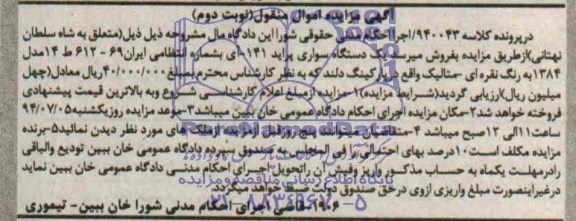 آگهی مزایده اموال منقول(نوبت دوم)
درپرونده کلاسه ۹۴۰۰۴۳/اجرا احکام مدنی حقوقی شورا این دادگاه مال مشروحه ذیل ذیل(متعلق به شاه سلطان
نهتانی)ازطریق مزایده بفروش میرسدیک دستگاه سواری پراید ۱۴۱-آی بشماره انتظامی ایران۶۹- ۶۱۲ ط ۱۴مدل
۱۳۸۴به رنگ نقره ای -متالیک واقع درپارکینگ دلند که به نظر کارشناس محترم بمبلغ۴۰/۰۰۰/۰۰۰ریال معادل(چهل
میلیون ریال)ارزیابی گردید(شرایط مزایده)۱-مزایده ازمبلغ اعلام کارشناسی شروع وبه بالاترین قیمت پیشنهادی
فروخته خواهد شد۲-مکان مزایده اجرای احکام دادگاه عمومی خان ببین میباشد۳-موعد مزایده روزیکشنبه۹۴/۰۷/۰۵
ساعت۱۱الی ۱۲صبح میباشد ۴-متقاضیان میتوانند پنج روزقبل ازمزایده ازملک های مورد نظر دیدن نمائید۵-برنده
مزایده مکلف است۱۰درصد بهای احتمالی را فی المجلس به صندوق سپرده دادگاه عمومی خان ببین تودیع والباقی
رادرمهلت یکماه به حساب مذکور واریز وفیش آن راتحویل اجرای احکام مدنی دادگاه عمومی خان ببین نماید
درغیراینصورت مبلغ واریزی ازوی درحق صندوق دولت ضبط خواهد میگردد.
۱۹۰۶-قاضی اجرای احکام مدنی شورا خان ببین- تیموری
پایگاه اطلاع رسانی مناقصه و مزایده
۰۲۱-۸۸۳۴۹۶۷۰-۵